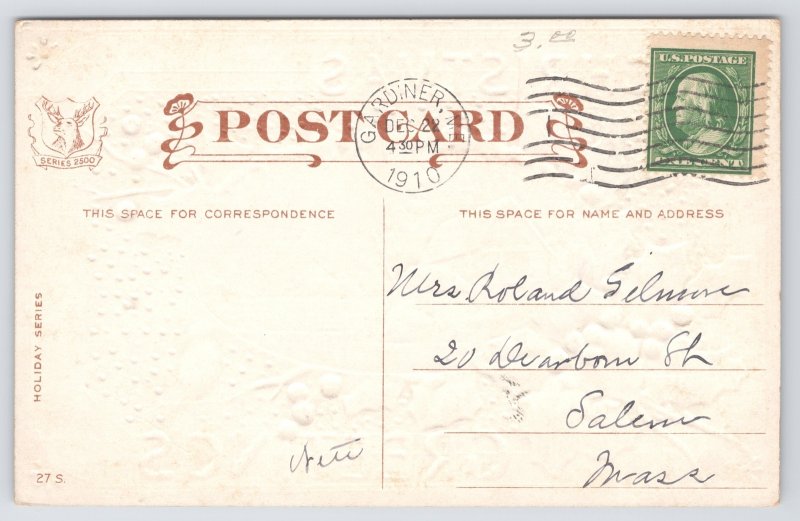 3.00
U.S. POSTAGE
POST CARD
GARDINER, ME
DEC 24
4 30 PM
1910
ONE CENT
SERIES 2500
THIS SPACE FOR CORRESPONDENCE
THIS SPACE FOR NAME AND ADDRESS
HOLIDAY SERIES
Mrs Roland Gilmore
20 Dearborn St
Salem
Mass
27 S.